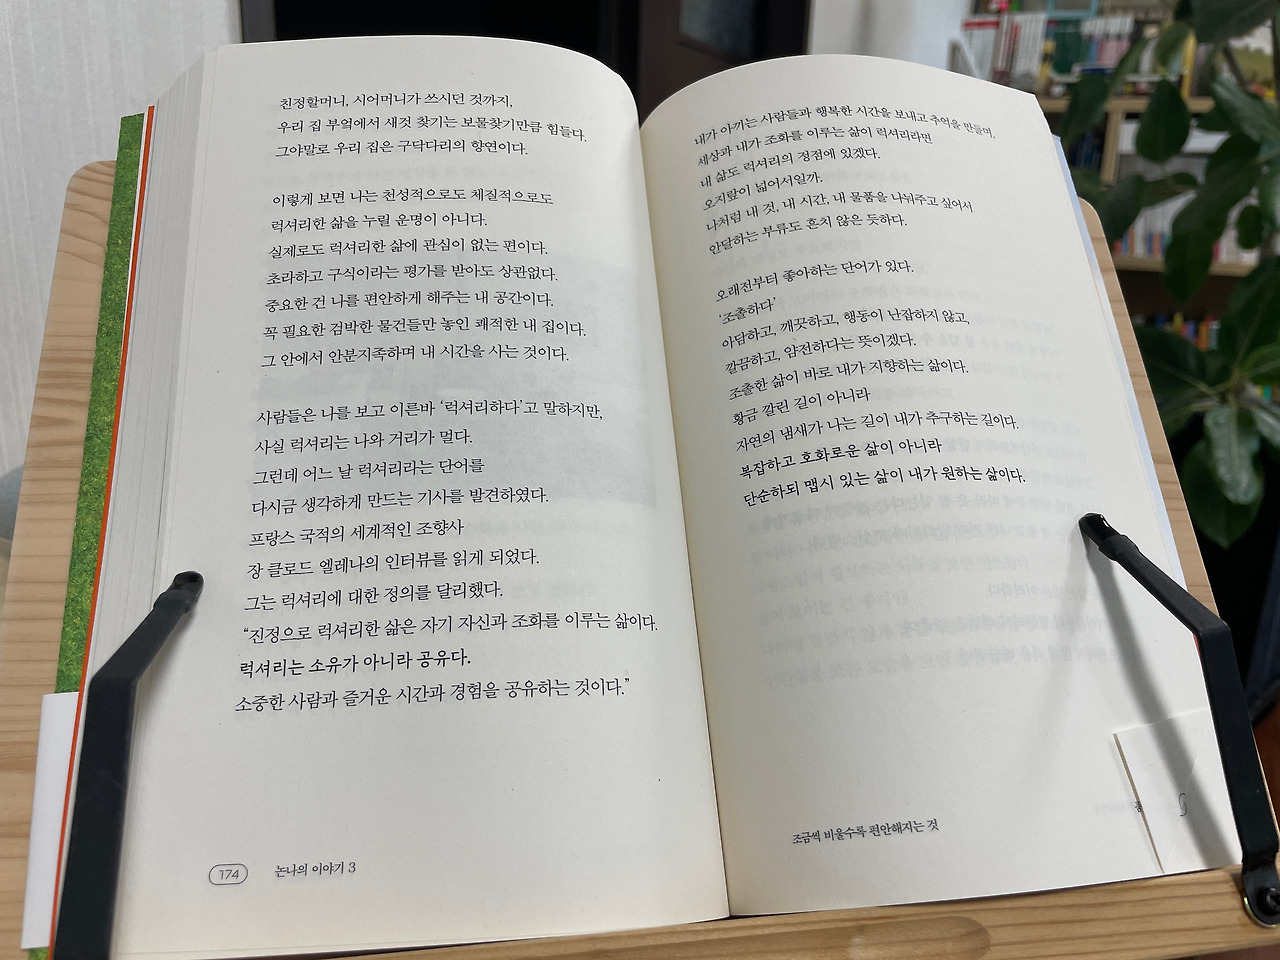 친정할머니, 시어머니가 쓰시던 것까지,
우리 집 부엌에서 새것 찾기는 보물찾기만큼 힘들다.
그야말로 우리 집은 구닥다리의 향연이다.
이렇게 보면 나는 천성적으로도 체질적으로도
럭셔리한 삶을 누릴 운명이 아니다.
실제로도 럭셔리한 삶에 관심이 없는 편이다.
초라하고 구식이라는 평가를 받아도 상관없다.
중요한 건 나를 편안하게 해주는 내 공간이다.
꼭 필요한 검박한 물건들만 놓인 쾌적한 내 집이다.
그 안에서 안분지족하며 내 시간을 사는 것이다.
사람들은 나를 보고 이른바 ‘럭셔리하다’고 말하지만,
사실 럭셔리는 나와 거리가 멀다.
그런데 어느 날 럭셔리라는 단어를
다시금 생각하게 만드는 기사를 발견하였다.
프랑스 국적의 세계적인 조향사
장 클로드 엘레나의 인터뷰를 읽게 되었다.
그는 럭셔리에 대한 정의를 달리했다.
“진정으로 럭셔리한 삶은 자기 자신과 조화를 이루는 삶이다.
럭셔리는 소유가 아니라 공유다.
소중한 사람과 즐거운 시간과 경험을 공유하는 것이다.”
174 논나의 이야기 3
내가 아끼는 사람들과 행복한 시간을 보내고 추억을 만들며,
세상과 내가 조화를 이루는 삶이 럭셔리라면
내 삶도 럭셔리의 정점에 있겠다.
오지랖이 넓어서일까.
나처럼 내 것, 내 시간, 내 물품을 나눠주고 싶어서
안달하는 부류도 흔치 않은 듯하다.
오래전부터 좋아하는 단어가 있다.
‘조촐하다’
아담하고, 깨끗하고, 행동이 난잡하지 않고,
깔끔하고, 얌전하다는 뜻이겠다.
조촐한 삶이 바로 내가 지향하는 삶이다.
황금 깔린 길이 아니라
자연의 냄새가 나는 길이 내가 추구하는 길이다.
복잡하고 호화로운 삶이 아니라
단순하되 맵시 있는 삶이 내가 원하는 삶이다.
조금씩 비울수록 편안해지는 것